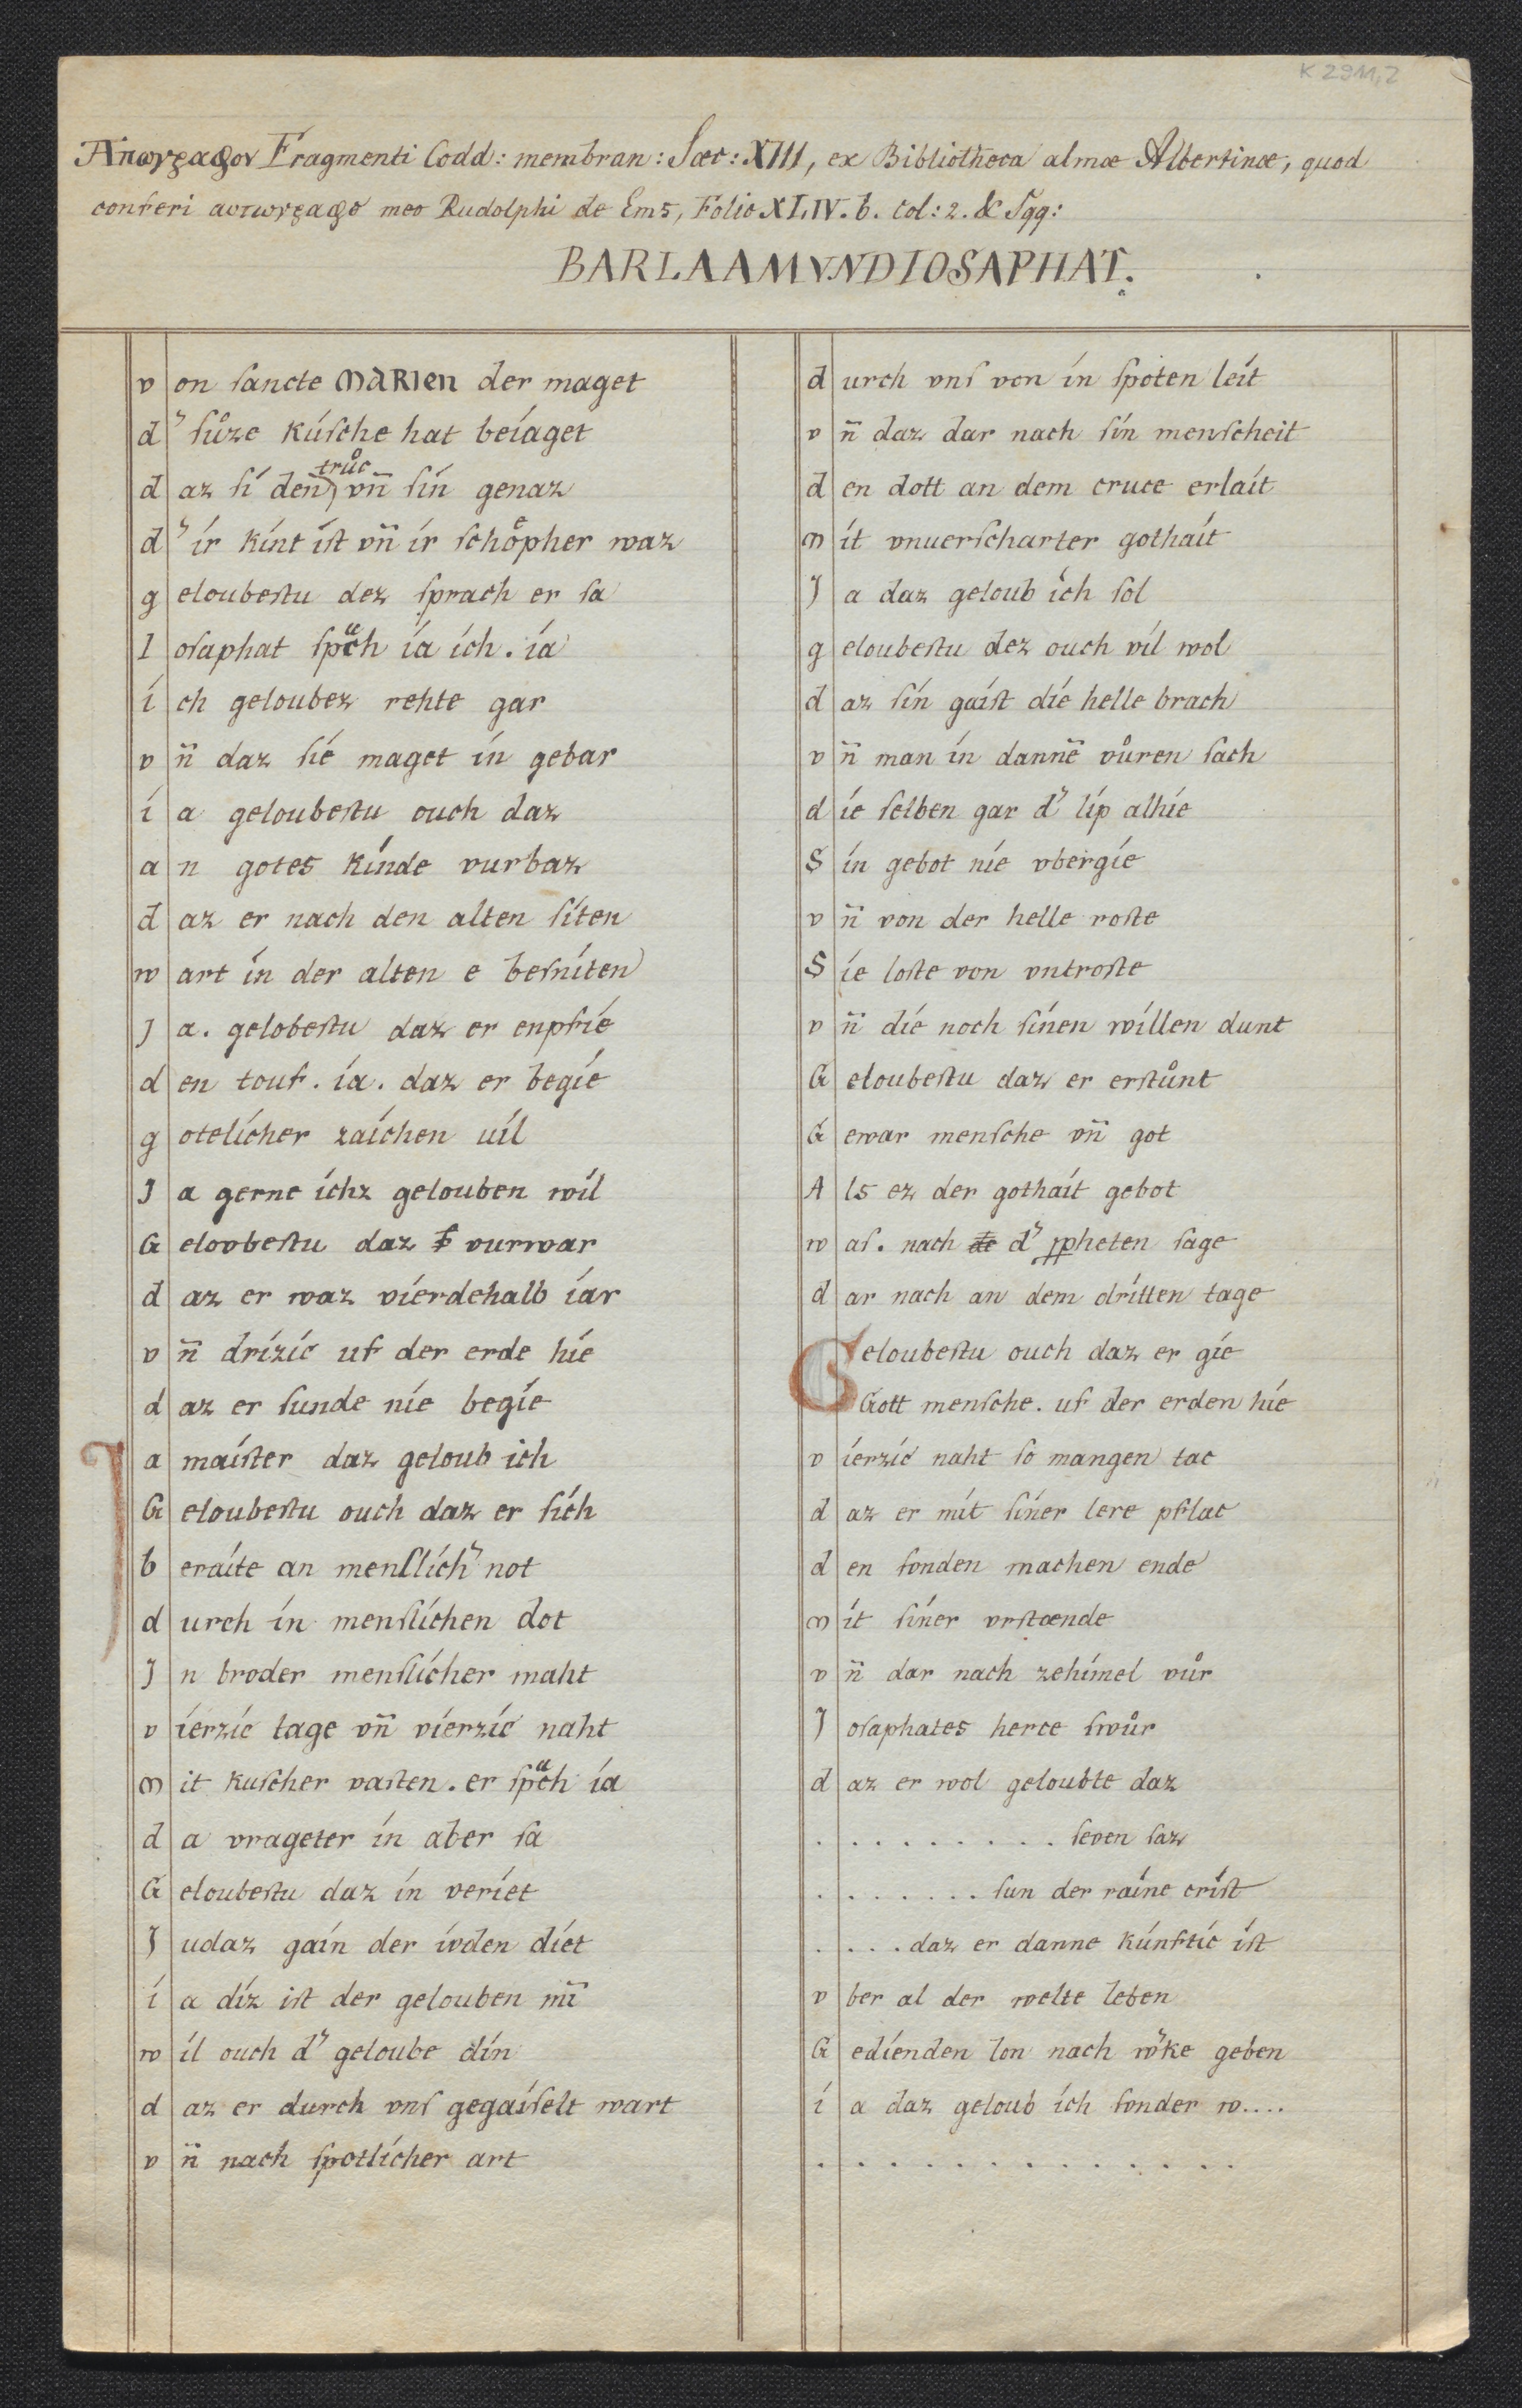 K 2911,2
Απωγραφον Fragmenti Codd: membran: Sæc: XIII, ex Bibliotheca almæ Albertinæ, quod
conferi αυτωγραφο meo Rudolphi de Ems, Folio XLIV. b. Col: 2. & ſqq:
BARLAAMVNDIOSAPHAT.
von ſancte MARIen der maget
d' ſůze kúſche hat beíaget
daz ſí den trůc vn̄ ſín genaz
d' ír kínt íſt vn̄ ír ſchoͤpher waz
geloubeſtu dez ſprach er ſa
Ioſaphat ſpͣch ía ích. ía
ích geloubez rehte gar
vn̄ daz ſíe maget ín gebar
ía geloubeſtu ouch daz
an gotes kínde vurbaz
daz er nach den alten ſíten
wart ín der alten e beſníten
Ja. gelobeſtu daz er enpfíe
den touf. ía. daz er begíe
gotelícher zaíchen uíl
Ja gerne íchz gelouben wíl
Gelovbeſtu daz f vurwar
daz er waz víerdehalb íar
vn̄ drízíc uf der erde híe
daz er ſunde níe begíe
Ja maíſter daz geloub ích
Geloubeſtu ouch daz er ſích
beraíte an menſlích' not
durch ín menſlíchen dot
Jn broder menſlícher maht
víerzíc tage vn̄ víerzíc naht
mit kuſcher vaſten. er ſpͣch ía
da vrageter ín aber ſa
Geloubeſtu daz ín veríet
Judaz gaín der ívden díet
ía díz iſt der gelouben mī
wíl ouch d' geloube dín
daz er durch vnſ gegaíſelt wart
vn̄ nach ſpotlícher art
durch vnſ von ín ſpoten leít
vn̄ daz dar nach ſín menſcheit
den dott an dem cruce erlaít
mít vnuerſcharter gothaít
Ja daz geloub ích ſol
geloubeſtu dez ouch víl wol
daz ſín gaíſt díe helle brach
vn̄ man ín dannē vůren ſach
díe ſelben gar d' líp alhíe
Sín gebot níe vbergíe
vn̄ von der helle roſte
Síe loſte von vntroſte
vn̄ díe noch ſínen wíllen dunt
Geloubeſtu daz er erſtůnt
Gewar menſche vn̄ got
Als ez der gothaít gebot
waſ. nach de d' ꝓpheten ſage
dar nach an dem drítten tage
Geloubeſtu ouch daz er gíe
Gott menſche. uf der erden híe
víerzíc naht ſo mangen tac
daz er mít ſíner lere pflac
den ſonden machen ende
mít ſíner vrſtænde
vn̄ dar nach zehímel vůr
Joſaphates herce ſwůr
daz er wol geloubte daz
. . . . . . . . . . ſeven ſaz
. . . . . . . . ſun der raíne críſt
. . . . . daz er danne kúnftíc íſt
vber al der welte leben
Gedíenden lon nach w'ke geben
ía daz geloub ích ſonder w....
. . . . . . . . . . . . . .